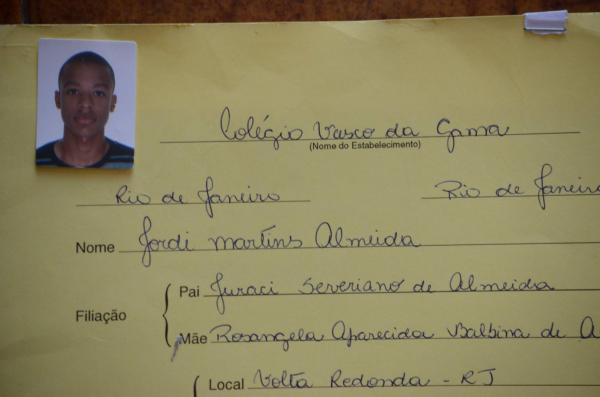 Colégio Vasco da Gama
(Nome do Estabelecimento)
Rio de Janeiro Rio de Janeiro
Nome Jordi Martins Almeida
Filiação
Pai Juraci Severiano de Almeida
Mãe Rosangela Aparecida Balbina de A
Local Volta Redonda - RJ